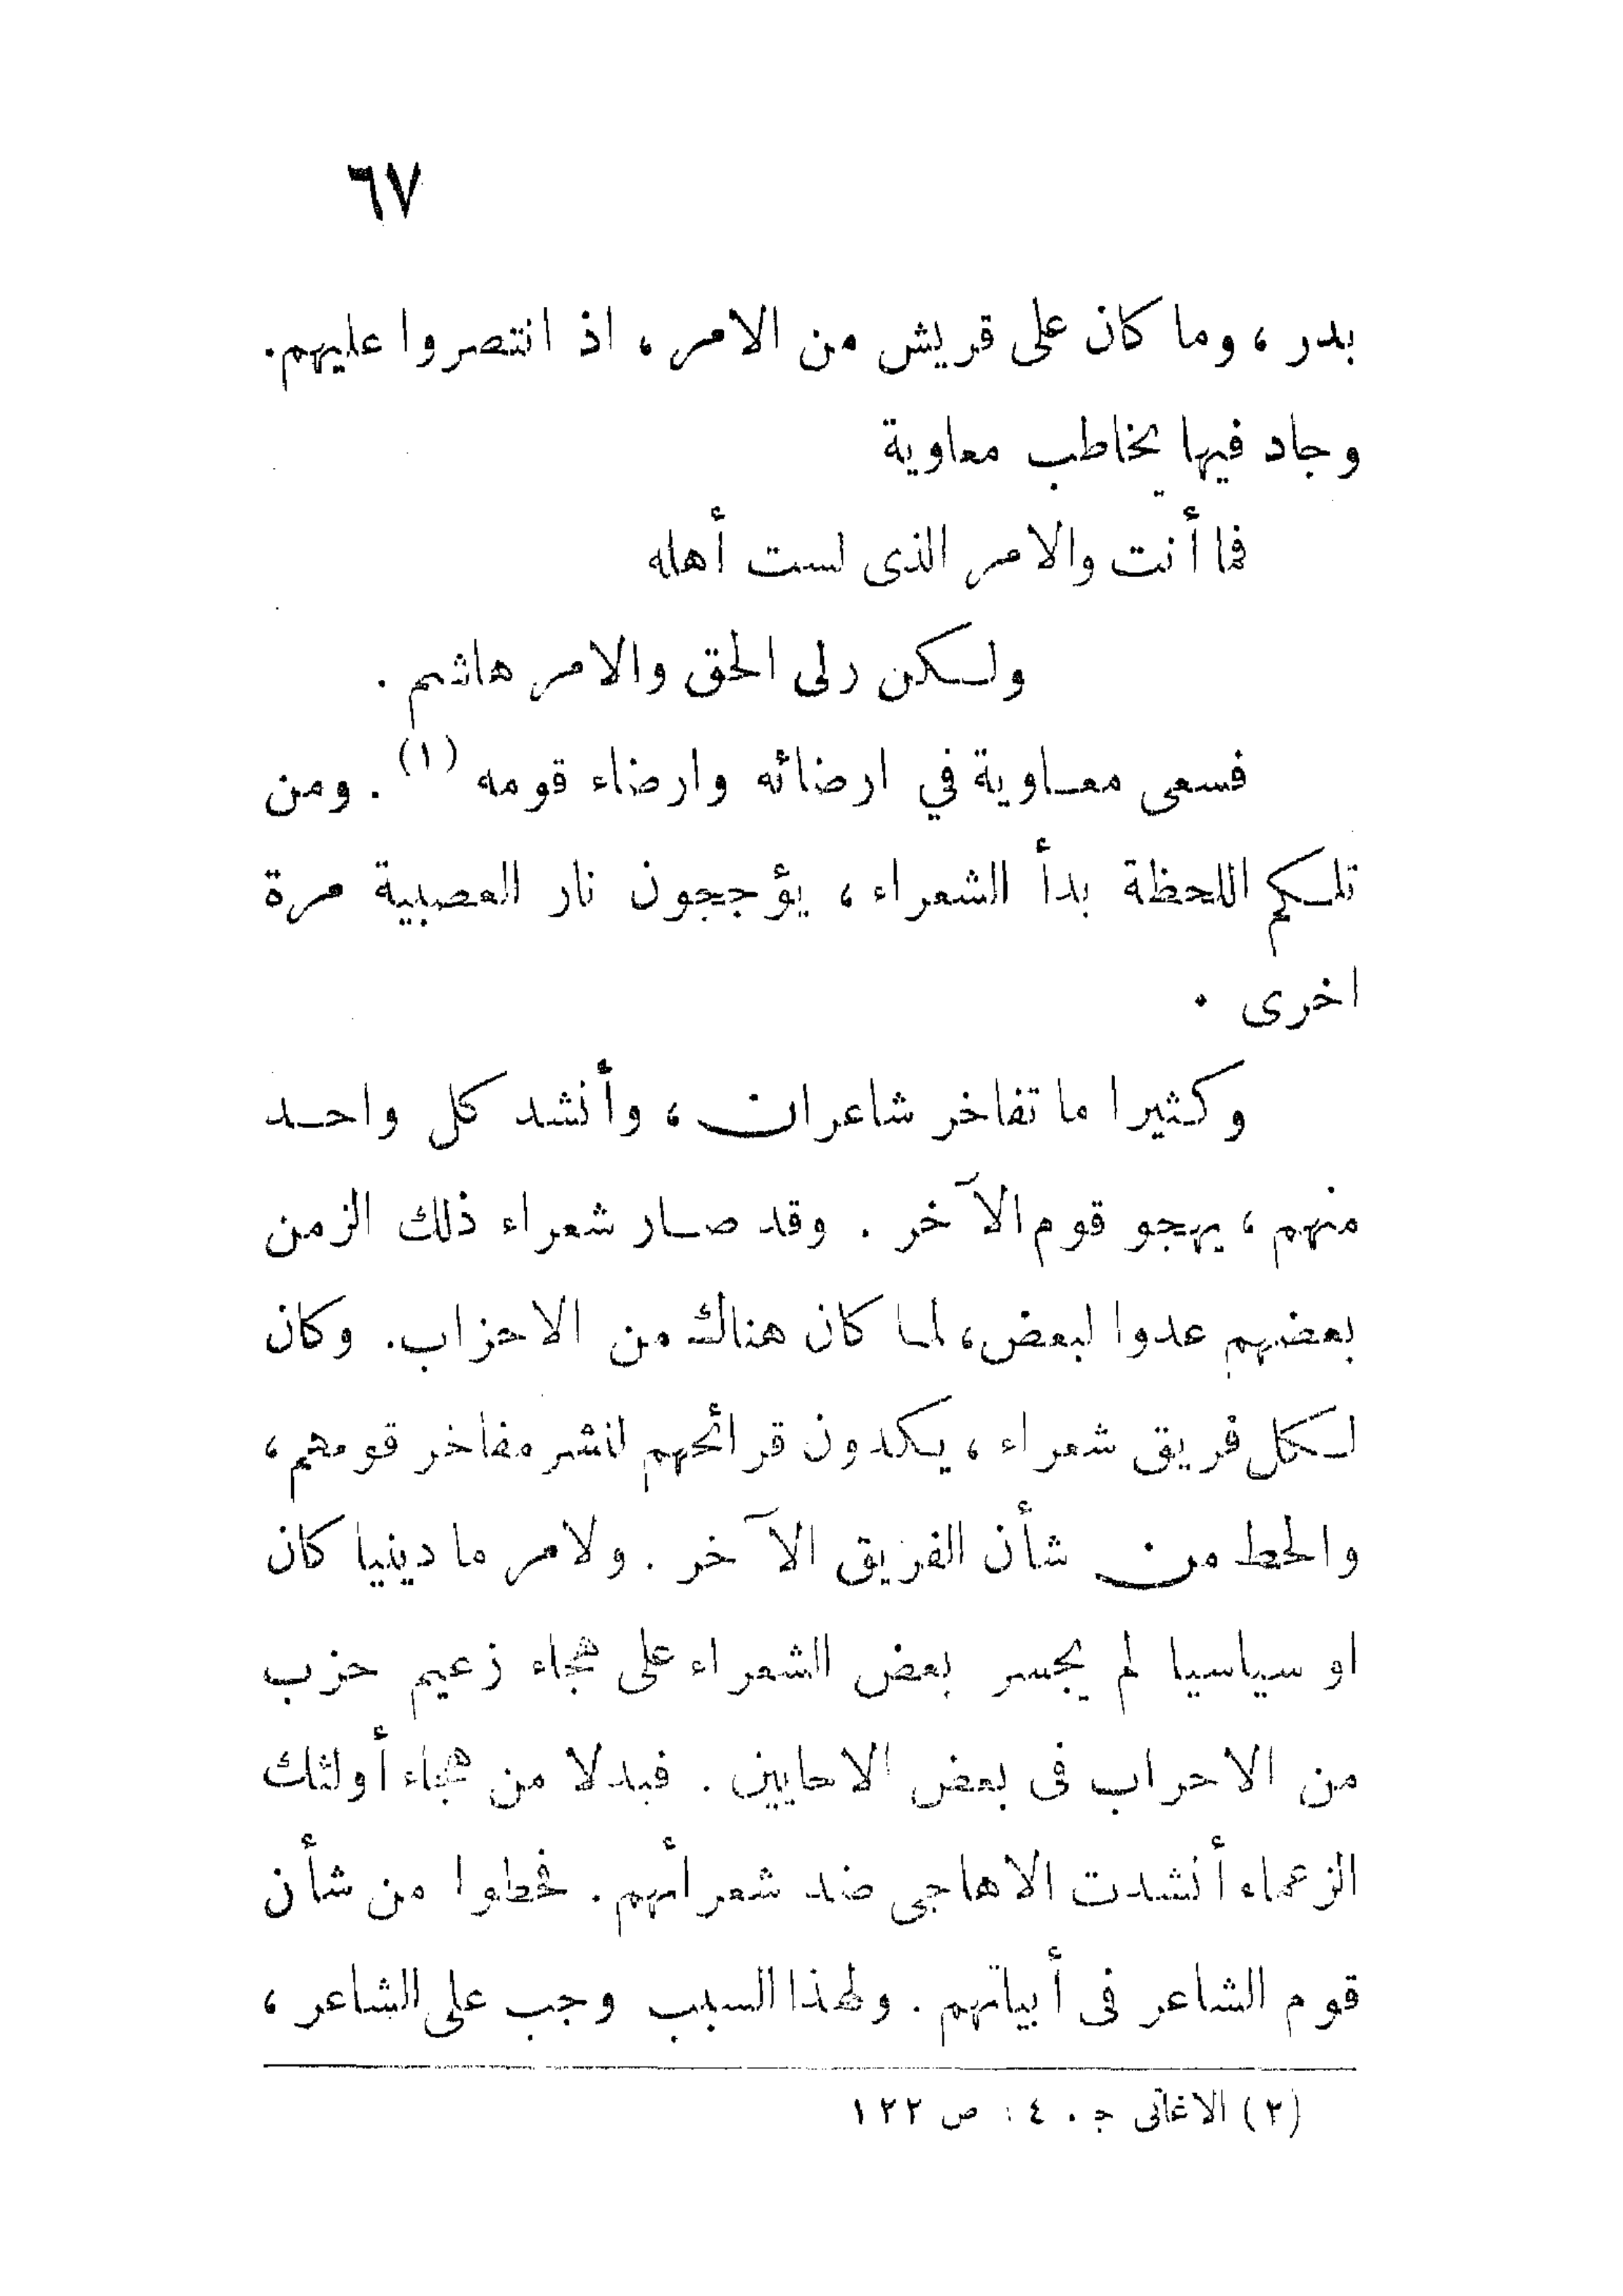 ٦٧
بدر ، وما كان على قريش من الامر ، اذ انتصروا عليهم.
وجاد فيها يخاطب معاوية
فما أنت والامر الذى لست أهله
ولكن رلى الحق والامر هاشم .
فسعى معاوية في ارضائه وارضاء قومه (١) . ومن
تلكم اللحظة بدأ الشعراء ، يؤججون نار العصبية مرة
اخرى .
وكثيرا ما تفاخر شاعران ، وأنشد كل واحد
منهم ، يهجو قوم الآخر . وقد صار شعراء ذلك الزمن
بعضهم عدوا لبعض، لما كان هناك من الاحزاب. وكان
لكل فريق شعراء ، يكدون قرائحهم لنشر مفاخر قومهم ،
والحط من شأن الفريق الآخر . ولامر ما دينيا كان
او سياسيا لم يجسر بعض الشعراء على هجاء زعيم حزب
من الاحراب فى بعض الاحايين . فبدلا من هجاء أولئك
الزعماء أنشدت الاهاجى ضد شعرأهم . فحطوا من شأن
قوم الشاعر فى أبياتهم . ولهذا السبب وجب على الشاعر ،
(٢) الاغانى ج . ٤ : ص ١٢٢